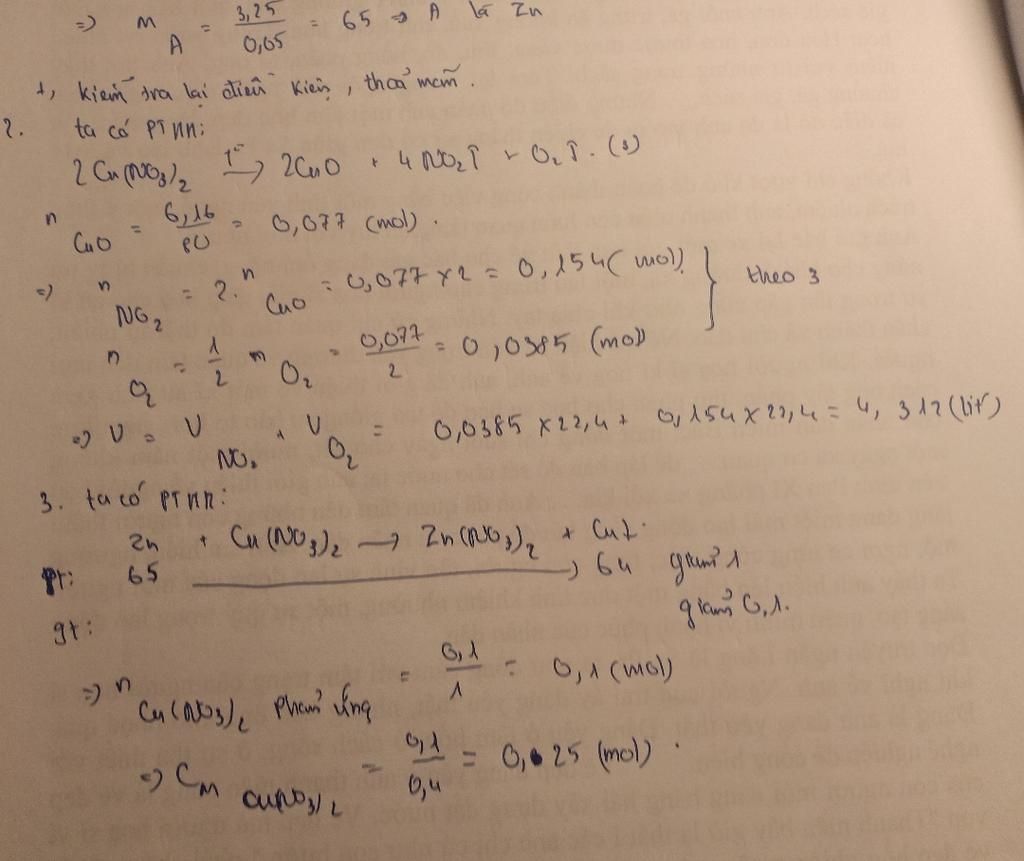 => M A = 3,25 / 0,05 = 65 => A là Zn
+, kiểm tra lại điều kiện, thoả mãn.
2. ta có PTPN:
2Cu(NO3)2 t° → 2CuO + 4NO2↑ + O2↑. (3)
n CuO = 6,16 / 80 = 0,077 (mol).
=> n NO2 = 2. n CuO = 0,077 x 2 = 0,154 (mol) } theo 3
n O2 = 1/2 n O2 = 0,077 / 2 = 0,0385 (mol)
=> V = V NO2 + V O2 = 0,0385 x 22,4 + 0,154 x 22,4 = 4,312 (lit)
3. ta có PTPN:
Zn + Cu(NO3)2 → Zn(NO3)2 + Cu↓.
pt: 65 → 64 giảm 1
gt: giảm 0,1.
=> n Cu(NO3)2 phản ứng = 0,1 / 1 = 0,1 (mol)
=> CM Cu(NO3)2 = 0,1 / 0,4 = 0,25 (mol).